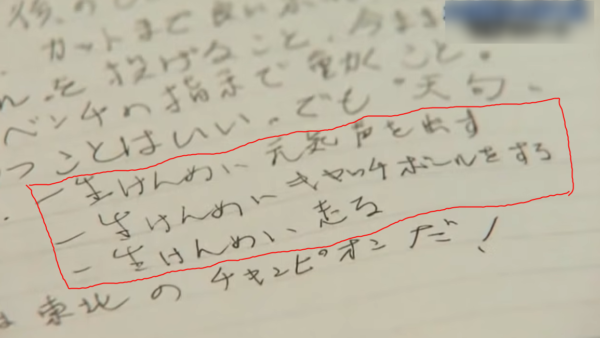 カットまで良い
を投げること、今
ベンチの指示で動くこと。
つことはいい。でも"天句、
一生けんめいに 元気 声を出す
一生けんめいに キャッチボールをする
一生けんめい 走る
は東北のチャンピオンだ！